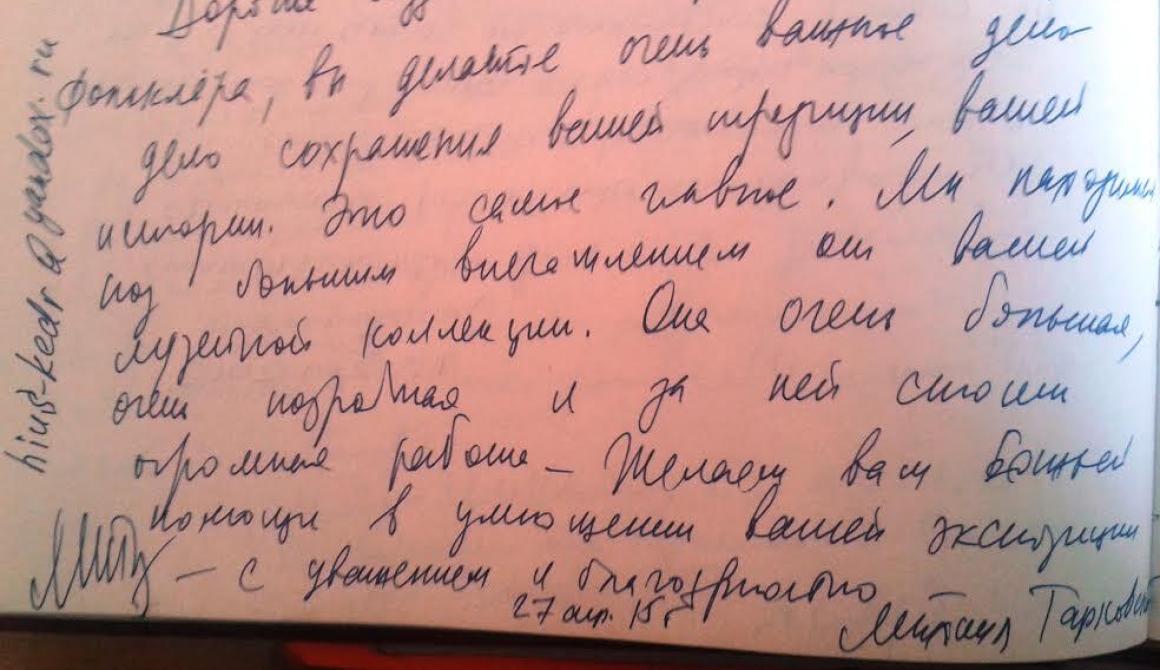 Дорогие
фольклора, вы делаете очень важное дело
дело сохранения вашей традиции, вашей
истории. Это самое главное. Мы находимся
под большим впечатлением от вашей
музейной коллекции. Она очень большая,
очень подробная и за ней стоит
огромная работа – Желаем вам Божьей
помощи в умножении вашей экспозиции
– с уважением и благодарностью
27 апр. 15 г
Михаил Тарковский
hius-kedr@yandex.ru